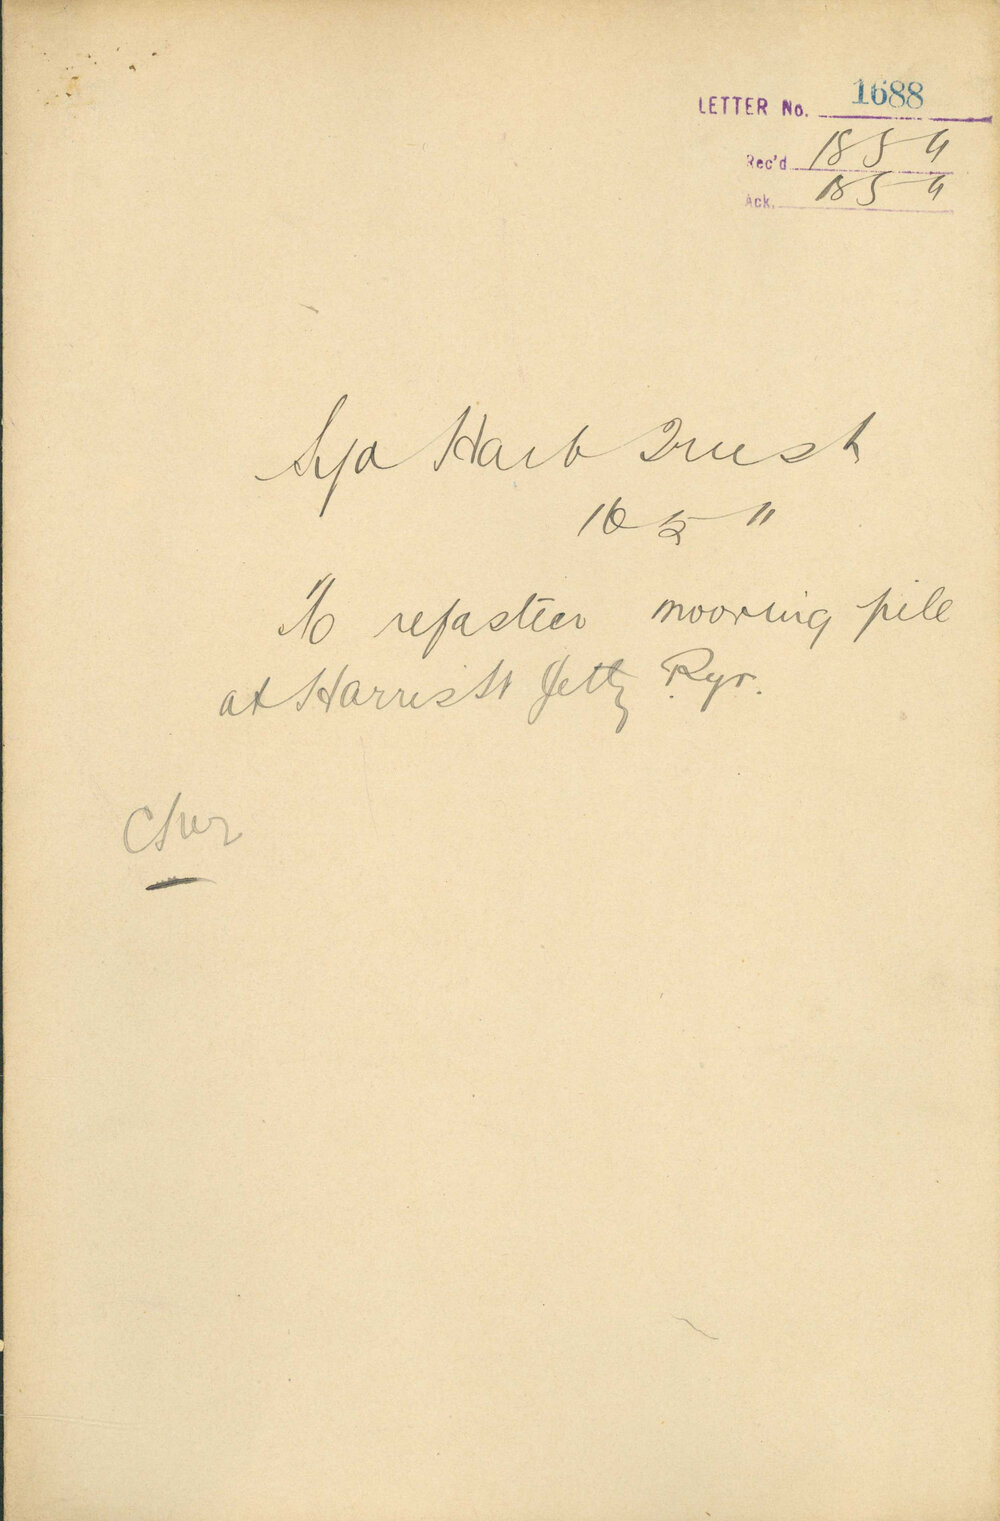 LETTER No. 1688
Rec'd 18 5 11
Ack. 18 5 11
Syd Harb Trust
16 5 11
To refasten mooring pile
at Harris St Jetty Pyr.